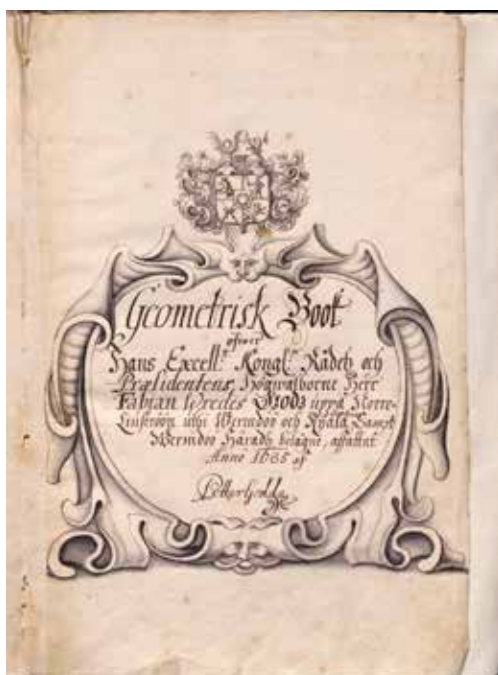 Geometrisk Book
öfwer
Hans Excell: Kongl: Rådetz och
Præsidentens, Högwälborne Herr
Fabian Wredes Godz uppå Norre-
uthi Wermdöö och Sampt
Wermdöö Häradh belägne, affattat
Anno 1685 af
Petter Gedda